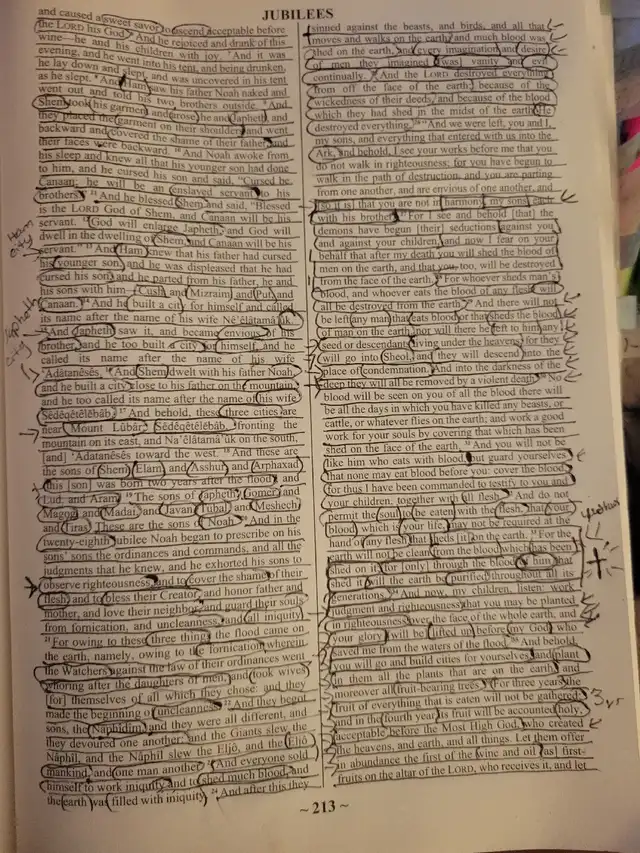 JUBILEES
and caused a sweet savor to ascend acceptable before
the LORD his God. And he rejoiced and drank of this
wine—he and his children with joy. And it was
evening, and he went into his tent, and being drunken,
he lay down and slept, and was uncovered in his tent
as he slept. And Ham saw his father Noah naked and
went out and told his two brothers outside. And
Shem took his garment and arose, he and Japheth, and
they placed the garment on their shoulders and went
backward and covered the shame of their father, and
their faces were backward. And Noah awoke from
his sleep and knew all that his younger son had done
to him, and he cursed his son and said, "Cursed be
Canaan; he will be an enslaved servant to his
brothers." 11 And he blessed Shem and said, "Blessed
is the LORD God of Shem, and Canaan will be his
servant. 12 God will enlarge Japheth, and God will
dwell in the dwelling of Shem, and Canaan will be his
servant." 13 And Ham knew that his father had cursed
his younger son, and he was displeased that he had
cursed his son, and he parted from his father, he and
his sons with him—Cush and Mizraim and Put and
Canaan. 14 And he built a city for himself and called
its name after the name of his wife Nê'êlâtamâ'ûk.
15 And Japheth saw it, and became envious of his
brother, and he too built a city for himself, and he
called its name after the name of his wife
'Adâtanêsês. 16 And Shem dwelt with his father Noah,
and he built a city close to his father on the mountain,
and he too called its name after the name of his wife
Sêdêqêtêlêbâb. 17 And behold, these three cities are
near Mount Lûbâr: Sêdêqêtêlêbâb fronting the
mountain on its east, and Na'êlâtamâ'ûk on the south,
[and] 'Adatanêsês toward the west. 18 And these are
the sons of Shem: Elam, and Asshur, and Arphaxad—
this [son] was born two years after the flood—and
Lud, and Aram. 19 The sons of Japheth: Gomer and
Magog and Madai and Javan, Tubal and Meshech
and Tiras. These are the sons of Noah. 20 And in the
twenty-eighth jubilee Noah began to prescribe on his
sons' sons the ordinances and commands, and all the
judgments that he knew, and he exhorted his sons to
observe righteousness, and to cover the shame of their
flesh, and to bless their Creator, and honor father and
mother, and love their neighbor, and guard their souls
from fornication, and uncleanness, and all iniquity.
21 For owing to these three things the flood came on
the earth, namely, owing to the fornication wherein
the Watchers against the law of their ordinances went
whoring after the daughters of men, and took wives
[for] themselves of all which they chose; and they
made the beginning of uncleanness. 22 And they begot
sons, the Naphidim, and they were all different, and
they devoured one another: and the Giants slew the
Nâphîl, and the Nâphîl slew the Eljô, and the Eljô
mankind, and one man another. 23 And everyone sold
himself to work iniquity and to shed much blood, and
the earth was filled with iniquity. 24 And after this they
sinned against the beasts, and birds, and all that
moves and walks on the earth: and much blood was
shed on the earth, and every imagination and desire
of men they imagined was vanity and evil
continually. 25 And the LORD destroyed everything
from off the face of the earth; because of the
wickedness of their deeds, and because of the blood
which they had shed in the midst of the earth He
destroyed everything. 26 "And we were left, you and I,
my sons, and everything that entered with us into the
Ark, and behold, I see your works before me that you
do not walk in righteousness: for you have begun to
walk in the path of destruction, and you are parting
from one another, and are envious of one another, and
[so it is] that you are not in harmony, my sons, each
with his brother. 27 For I see and behold [that] the
demons have begun [their] seductions against you
and against your children, and now I fear on your
behalf that after my death you will shed the blood of
men on the earth, and that you, too, will be destroyed
from the face of the earth. 28 For whoever sheds man's
blood, and whoever eats the blood of any flesh, will
all be destroyed from the earth. 29 And there will not
be left any man that eats blood, or that sheds the blood
of man on the earth, nor will there be left to him any
seed or descendants living under the heavens; for they
will go into Sheol, and they will descend into the
place of condemnation. And into the darkness of the
deep they will all be removed by a violent death. 30 No
blood will be seen on you of all the blood there will
be all the days in which you have killed any beasts, or
cattle, or whatever flies on the earth; and work a good
work for your souls by covering that which has been
shed on the face of the earth. 31 And you will not be
like him who eats with blood, but guard yourselves
that none may eat blood before you: cover the blood,
for thus I have been commanded to testify to you and
your children, together with all flesh. 32 And do not
permit the soul to be eaten with the flesh, that your
blood, which is your life, may not be required at the
hand of any flesh that sheds it on the earth. 33 For the
earth will not be clean from the blood which has been
shed on it; for [only] through the blood of him that
shed it will the earth be purified throughout all its
generations. 34 And now, my children, listen: work
judgment and righteousness that you may be planted
in righteousness over the face of the whole earth, and
your glory will be lifted up before my God, who
saved me from the waters of the flood. 35 And behold,
you will go and build cities for yourselves, and plant
in them all the plants that are on the earth, and
moreover all fruit-bearing trees. 36 For three years the
fruit of everything that is eaten will not be gathered:
and in the fourth year its fruit will be accounted holy,
acceptable before the Most High God, who created
the heavens, and earth, and all things. Let them offer
in abundance the first of the wine and oil [as] first-
fruits on the altar of the LORD, who receives it, and let
Ham
city
city
3 yr
~ 213 ~